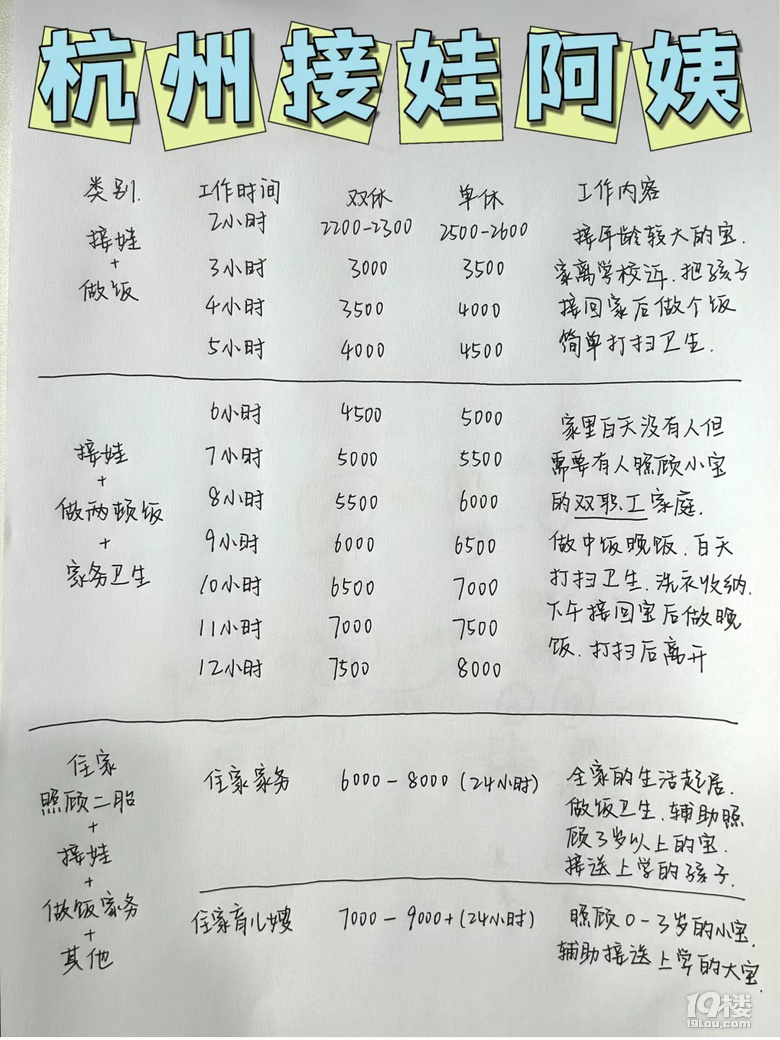 杭州接娃阿姨
类别 工作时间 双休 单休 工作内容
接娃
+
做饭
2小时 2200-2300 2500-2600
3小时 3000 3500
4小时 3500 4000
5小时 4000 4500
接年龄较大的宝.
家离学校近.把孩子
接回家后做个饭
简单打扫卫生.
接娃
+
做两顿饭
+
家务卫生
6小时 4500 5000
7小时 5000 5500
8小时 5500 6000
9小时 6000 6500
10小时 6500 7000
11小时 7000 7500
12小时 7500 8000
家里白天没有人但
需要有人照顾小宝
的双职工家庭.
做中饭晚饭.白天
打扫卫生.洗衣收纳.
下午接回宝后做晚
饭.打扫后离开
住家
照顾二胎
+
接娃
+
做饭家务
+
其他
住家家务 6000-8000(24小时)
全家的生活起居.
做饭卫生.辅助照
顾3岁以上的宝.
接送上学的孩子.
住家育儿嫂 7000-9000+(24小时)
照顾0-3岁的小宝.
辅助接送上学的大宝.
19楼
19lou.com